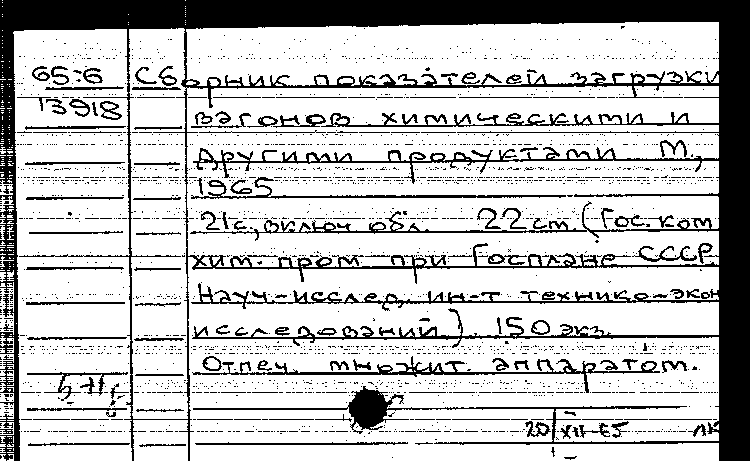 65:6 Сборник показателей загрузки
13918 вагонов химическими и
другими продуктами М.,
1965
21с, включ обл. 22 см. (Гос. ком
хим. пром при Госплане СССР.
Науч-исслед. ин-т технико-экон
исследований) 150 экз.
Отпеч. множит. аппаратом.
20/XII-65 ЛК